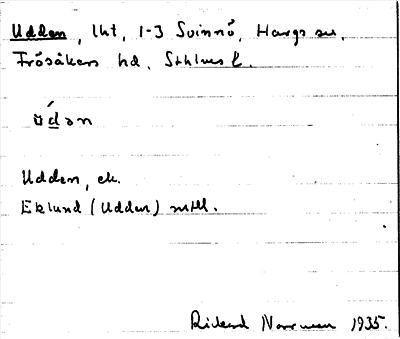 Udden, lht, 1-3 Svinnö, Hargs sn,
Frösåkers hd, Sthlms l.
ú̈dən
Udden, ek.
Eklund (Udden) mtll.
Rickard Norrman 1935.